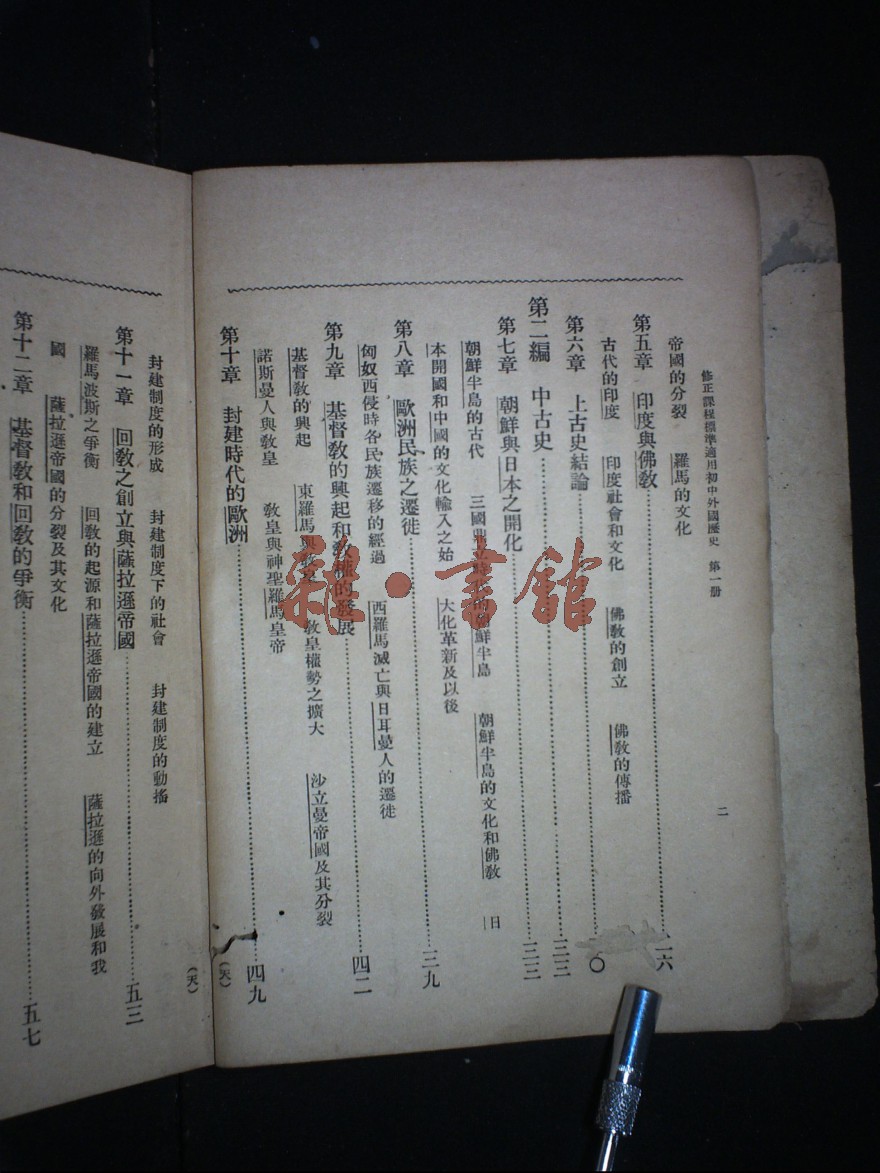 修正課程標準適用初中外國歷史　第一册
二
帝國的分裂　羅馬的文化
第五章　印度與佛教……二六
古代的印度　印度社會和文化　佛教的創立　佛教的傳播
第六章　上古史結論……〇
第二編　中古史……三三
第七章　朝鮮與日本之開化……三三
朝鮮半島的古代　三國鼎立時代的朝鮮半島　朝鮮半島的文化和佛教　日
本開國和中國的文化輸入之始　大化革新及以後
第八章　歐洲民族之遷徙……三九
匈奴西侵時各民族遷移的經過　西羅馬滅亡與日耳曼人的遷徙
第九章　基督教的興起和教權的發展……四二
基督教的興起　東羅馬與教皇　教皇權勢之擴大　沙立曼帝國及其分裂
諾斯曼人與教皇　教皇與神聖羅馬皇帝
第十章　封建時代的歐洲……四九
(天)
(天)
封建制度的形成　封建制度下的社會　封建制度的動搖
第十一章　回教之創立與薩拉遜帝國……五三
羅馬波斯之爭衡　回教的起源和薩拉遜帝國的建立　薩拉遜的向外發展和我
國　薩拉遜帝國的分裂及其文化
第十二章　基督教和回教的爭衡……五七
雜·書館